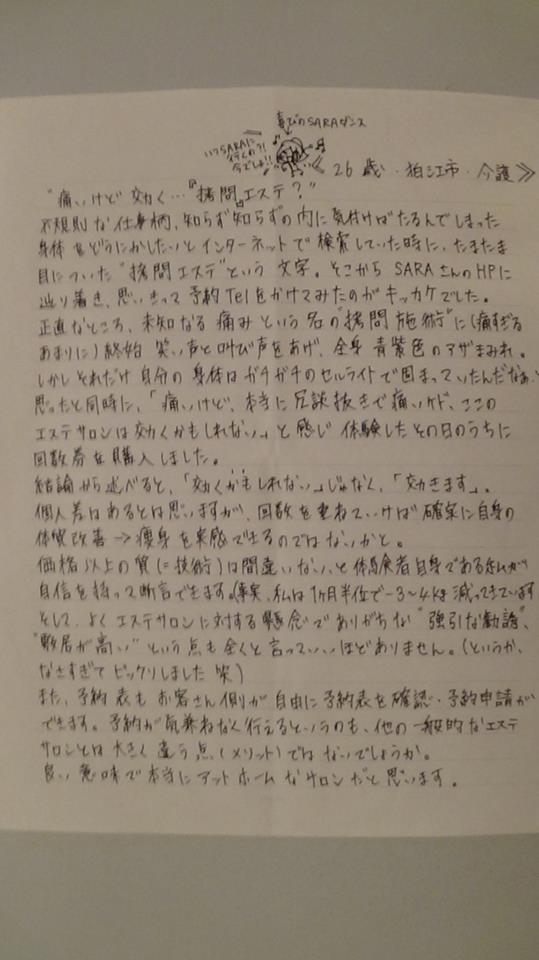 喜びのSARAダンス
いつSARAに
行くの?!
今でしょ!!
《 26歳・狛江市・介護》
"痛いけど効く…『拷問』エステ?"
不規則な仕事柄、知らず知らずの内に気付けばたるんでしまった
身体をどうにかしたいとインターネットで検索していた時に、たまたま
目についた"拷問エステ"という文字。そこからSARAさんのHPに
辿り着き、思いきって予約Telをかけてみたのがキッカケでした。
正直なところ、未知なる痛みという名の"拷問施術"に(痛すぎる
あまりに)終始 笑い声と叫び声をあげ、全身青紫色のアザまみれ。
しかしそれだけ自分の身体はガチガチのセルライトで固まっていたんだなぁ、と
思ったと同時に、「痛いけど、本当に冗談抜きで痛いケド、ここの
エステサロンは効くかもしれない。」と感じ 体験したその日のうちに
回数券を購入しました。
結論から述べると、「効くかもしれない」じゃなく、「効きます」。
個人差はあるとは思いますが、回数を重ねていけば確実に自身の
体質改善→痩身を実感できるのではないかと。
価格以上の質(=技術)は間違いないと体験者自身である私が
自信を持って断言できます。(事実、私は1ヶ月半位で-3~4kg減ってきています)
そして、よくエステサロンに対する懸念でありがちな"強引な勧誘"、
"敷居が高い"という点も全くと言っていいほどありません。(というか、
なさすぎてビックリしました 笑)
また、予約表もお客さん側が自由に予約表を確認・予約申請が
できます。予約が気兼ねなく行えるというのも、他の一般的なエステ
サロンとは大きく違う点(メリット)ではないでしょうか。
良い意味で本当にアットホームなサロンだと思います。